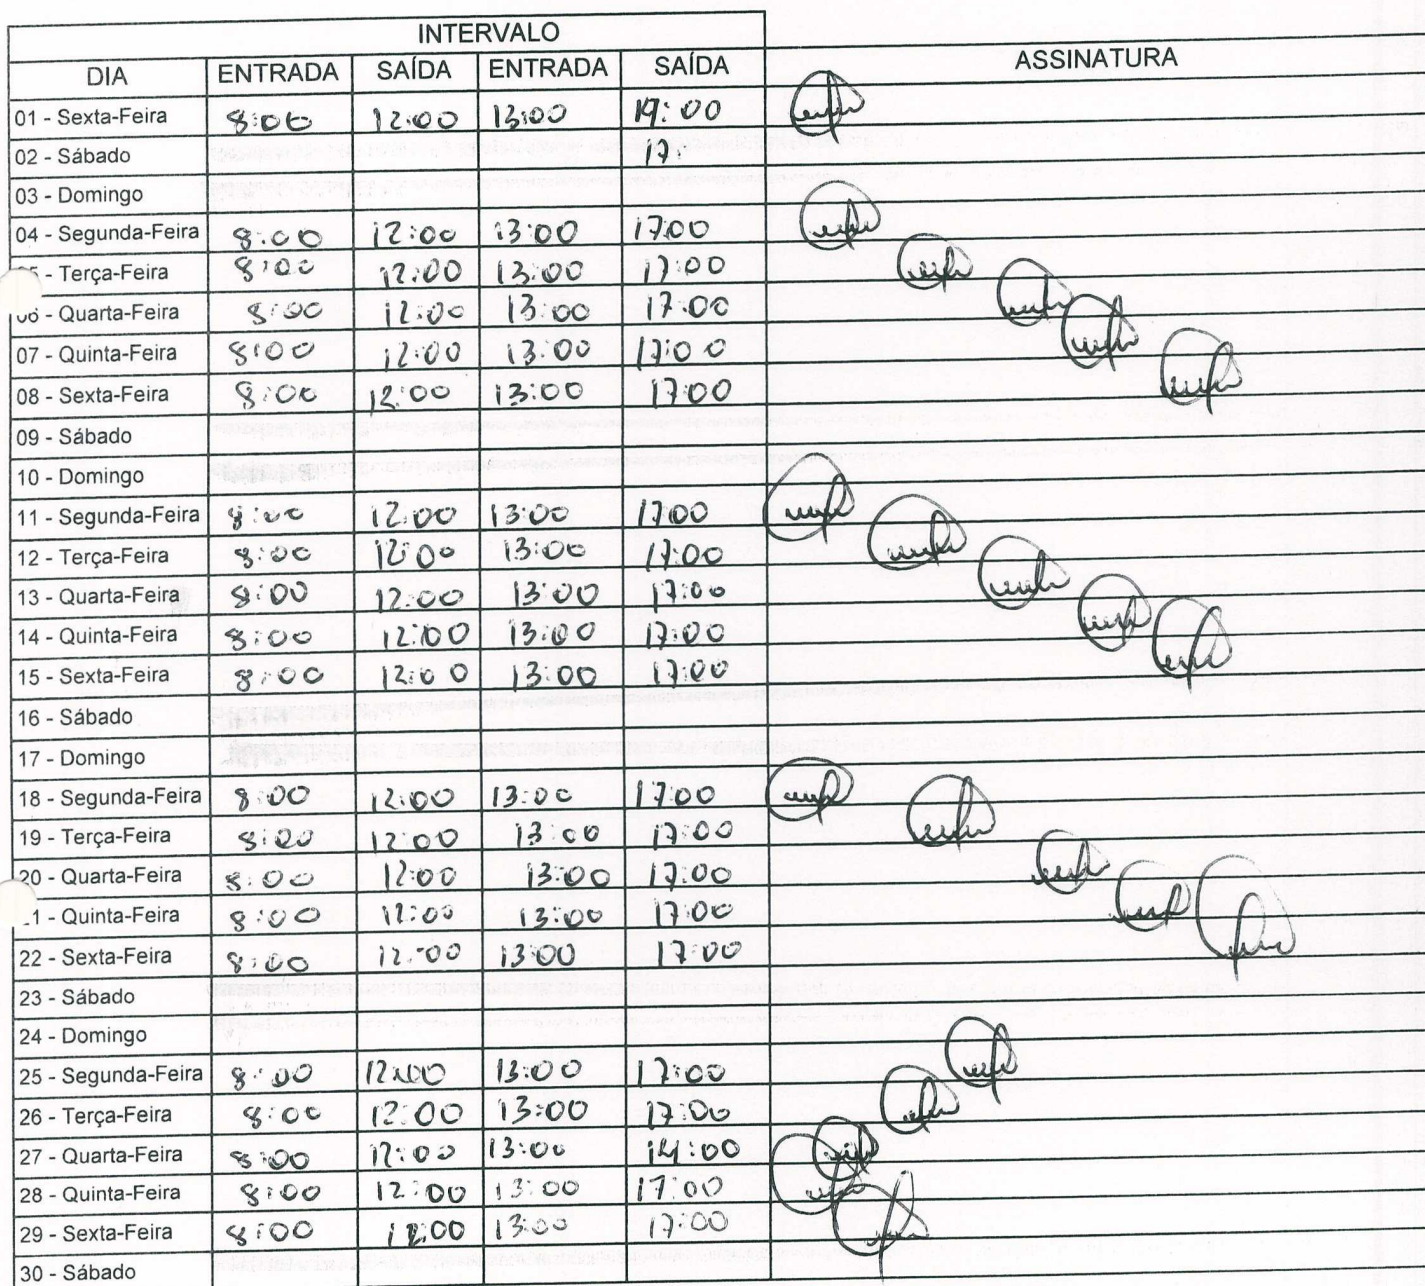 INTERVALO
DIA ENTRADA SAÍDA ENTRADA SAÍDA ASSINATURA
01 - Sexta-Feira 8:00 12:00 13:00 17:00
02 - Sábado 17:
03 - Domingo
04 - Segunda-Feira 8:00 12:00 13:00 17:00
- Terça-Feira 8:00 12:00 13:00 17:00
06 - Quarta-Feira 8:00 12:00 13:00 17:00
07 - Quinta-Feira 8:00 12:00 13:00 17:00
08 - Sexta-Feira 8:00 12:00 13:00 17:00
09 - Sábado
10 - Domingo
11 - Segunda-Feira 8:00 12:00 13:00 17:00
12 - Terça-Feira 8:00 12:00 13:00 17:00
13 - Quarta-Feira 8:00 12:00 13:00 17:00
14 - Quinta-Feira 8:00 12:00 13:00 17:00
15 - Sexta-Feira 8:00 12:00 13:00 17:00
16 - Sábado
17 - Domingo
18 - Segunda-Feira 8:00 12:00 13:00 17:00
19 - Terça-Feira 8:00 12:00 13:00 17:00
20 - Quarta-Feira 8:00 12:00 13:00 17:00
- Quinta-Feira 8:00 12:00 13:00 17:00
22 - Sexta-Feira 8:00 12:00 13:00 17:00
23 - Sábado
24 - Domingo
25 - Segunda-Feira 8:00 12:00 13:00 17:00
26 - Terça-Feira 8:00 12:00 13:00 17:00
27 - Quarta-Feira 8:00 12:00 13:00 14:00
28 - Quinta-Feira 8:00 12:00 13:00 17:00
29 - Sexta-Feira 8:00 12:00 13:00 17:00
30 - Sábado